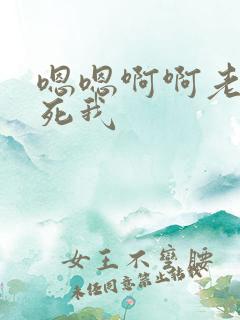 嗯嗯啊啊老
死我
女王不弯腰
未经同意禁止转载